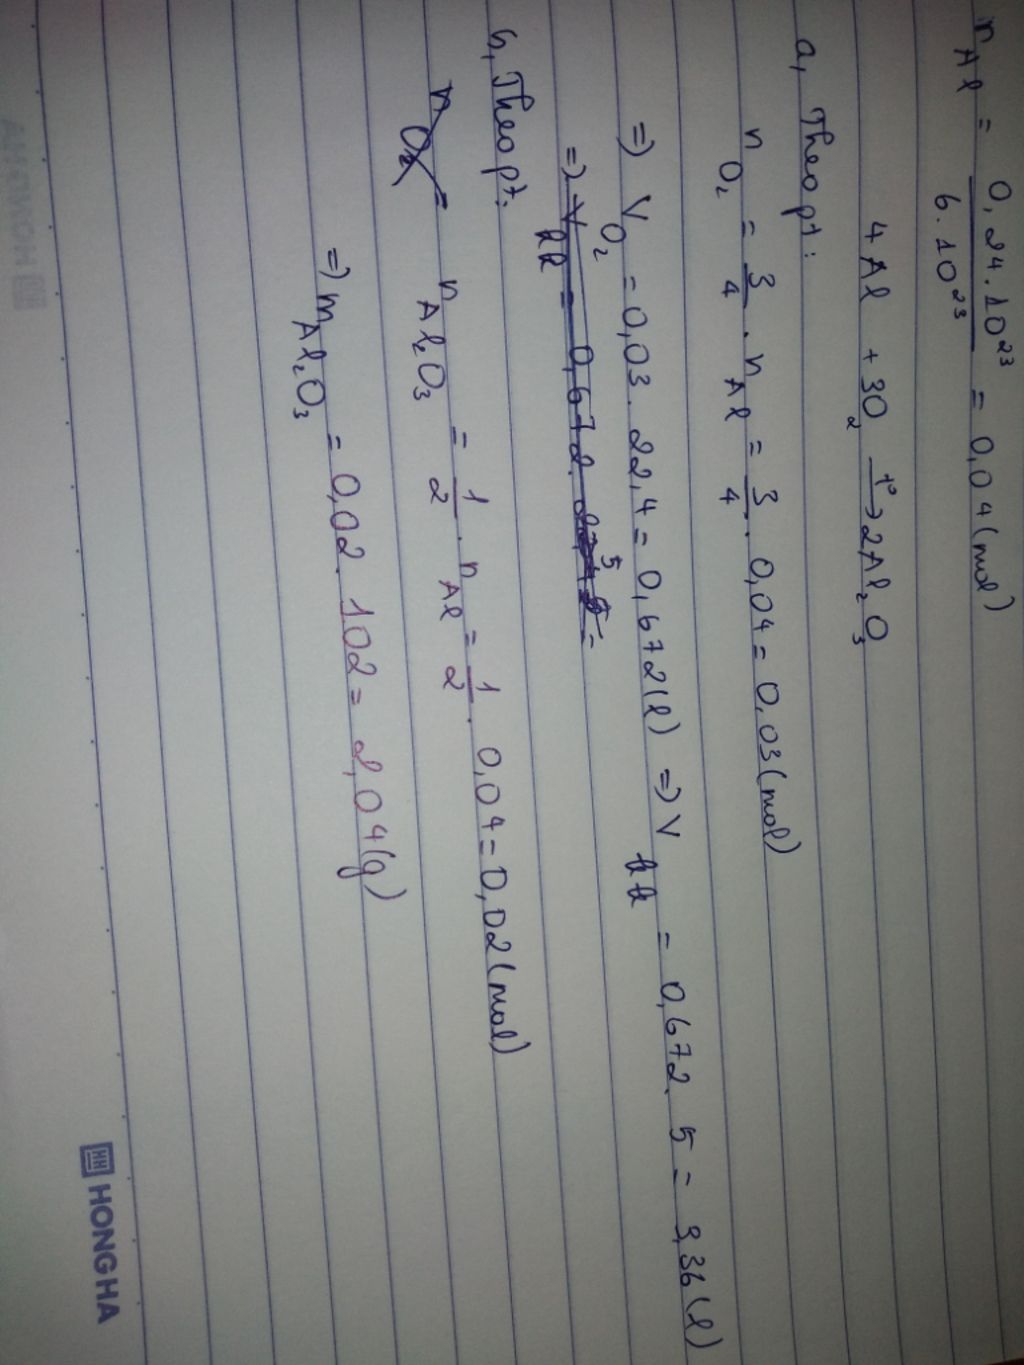 n Al = 0,24.10^23 / 6.10^23 = 0,04 (mol)
4Al + 3O2 t°→ 2Al2O3
a, Theo pt:
n O2 = 3/4 . n Al = 3/4 . 0,04 = 0,03 (mol)
=> V O2 = 0,03 . 22,4 = 0,672 (l) => V kk = 0,672 . 5 = 3,36 (l)
=> V kk = 0,672.
b, Theo pt:
n O2 = n Al2O3 = 1/2 . n Al = 1/2 . 0,04 = 0,02 (mol)
=> m Al2O3 = 0,02 . 102 = 2,04 (g)
HH HONG HA